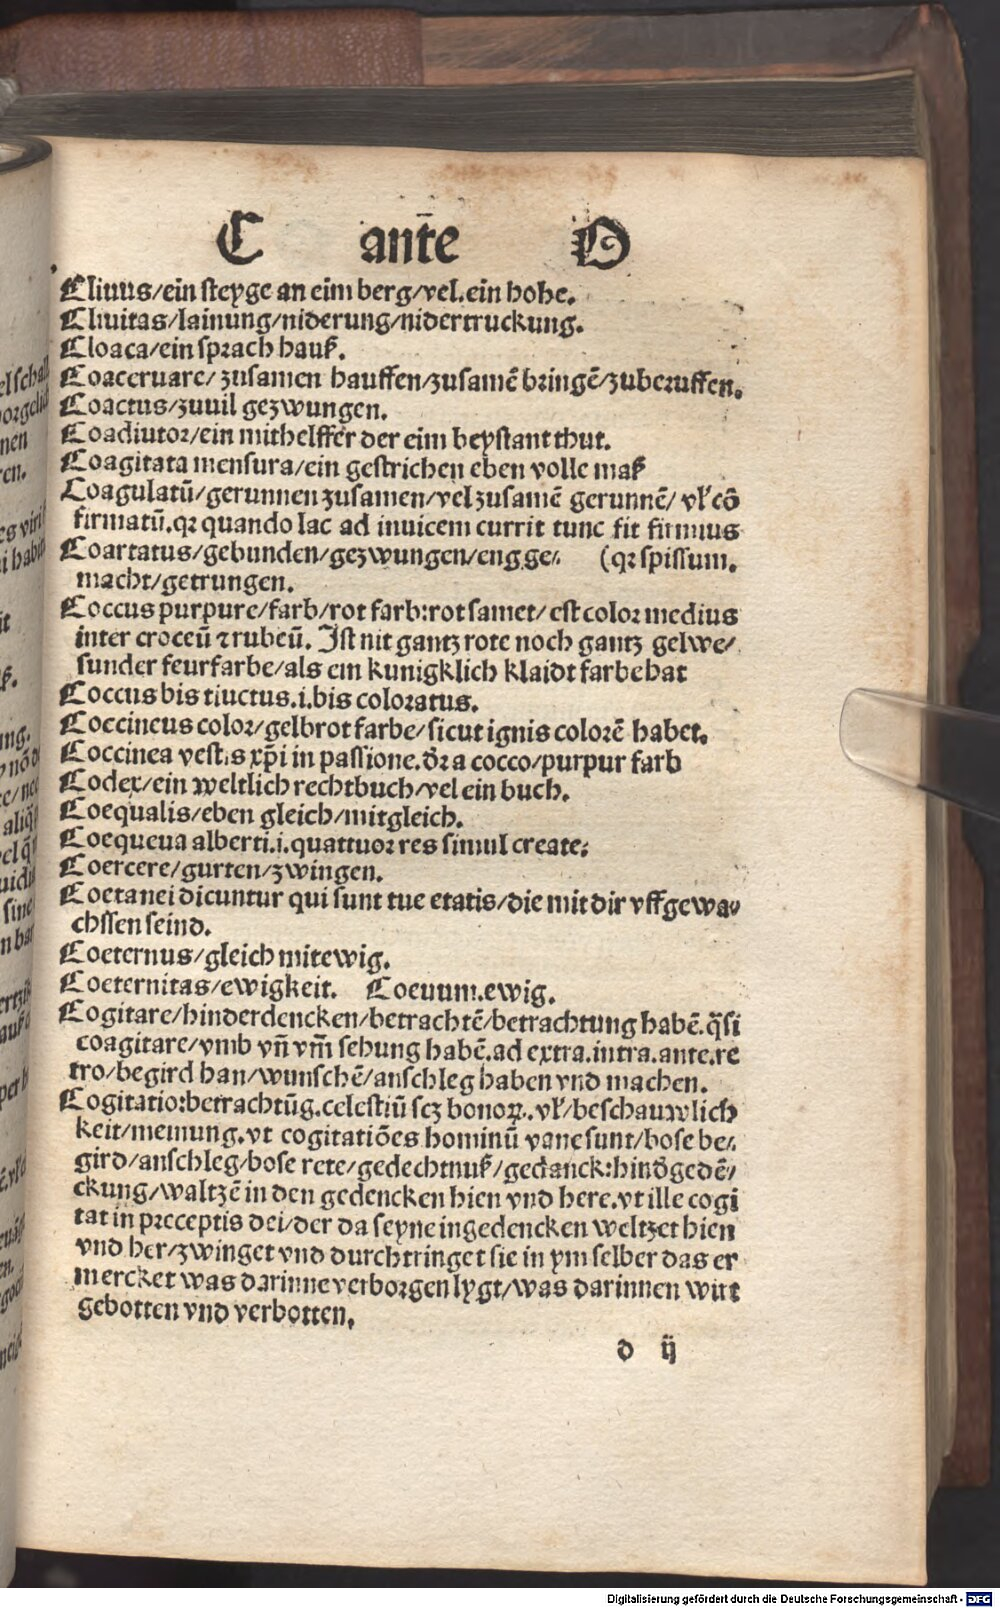 C ant̄e O
Cliuus/ein steyge an eim berg/vel.ein hohe.
Cliuitas/lainung/niderung/nidertruckung.
Cloaca/ein sprach hauß.
Coaceruare/ zusamen hauffen/zusamē bringē/zuberuffen.
Coactus/zuuil gezwungen.
Coadiutor/ein mithelffer der eim beystant thut.
Coagitata mensura/ein gestrichen eben volle maß
Coagulatū/gerunnen zusamen/vel zusamē gerunnē/ vl' cō
firmatū.qr quando lac ad inuicem currit tunc fit firmius
Coartatus/gebunden/gezwungen/eng ge⸗ (qr spissum.
macht/getrungen.
Coccus purpure/farb/rot farb:rot samet/ est color medius
inter croceū ⁊ rubeū. Ist nit gantz rote noch gantz gelwe/
sunder feurfarbe/als ein kunigklich klaidt farbe hat
Coccus bis tiuctus.i.bis coloratus.
Coccineus color/gelbrot farbe/sicut ignis colorē habet.
Coccinea vestis xp̄i in passione.dr̄ a cocco/purpur farb
Codex/ein weltlich rechtbuch/vel ein buch.
Coequalis/eben gleich/mitgleich.
Coequeua alberti.i.quattuor res simul create:
Coercere/gurten/zwingen.
Coetanei dicuntur qui sunt tue etatis/die mit dir vffgewa⸗
chssen seind.
Coeternus/gleich mitewig.
Coeternitas/ewigkeit. Coeuum.ewig.
Cogitare/hinderdencken/betrachtē/betrachtung habē.q̄si
coagitare/vmb vn̄ vm̄ sehung habē.ad extra.intra.ante.re
tro/begird han/wunschē/anschleg haben vnd machen.
Cogitatio:betrachtūg.celestiū scz bonoꝝ.vl'/beschauwlich
keit/meinung.vt cogitatiōes hominū vane sunt/bose be⸗
gird/anschleg/bose rete/gedechtnuß/gedanck:hind'gedē/
ckung/waltzē in den gedencken hien vnd here.vt ille cogi
tat in preceptis dei/der da seyne ingedencken weltzet hien
vnd her/zwinget vnd durchtringet sie in ym selber das er
mercket was darinne verborgen lygt/was darinnen wirt
gebotten vnd verbotten.
d ij
Digitalisierung gefördert durch die Deutsche Forschungsgemeinschaft - DFG